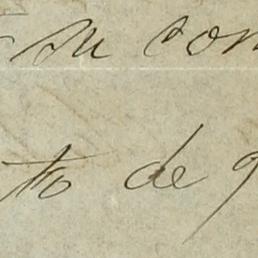 su con
to de q